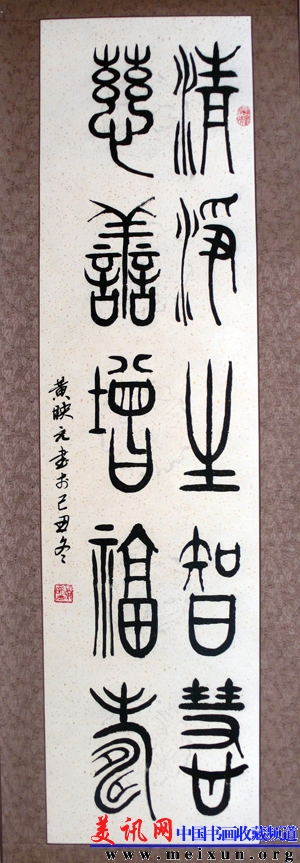 清淨生智慧
慈善增福壽
黄映元书于己丑冬
美讯网 中国书画收藏频道
www.meixun.org